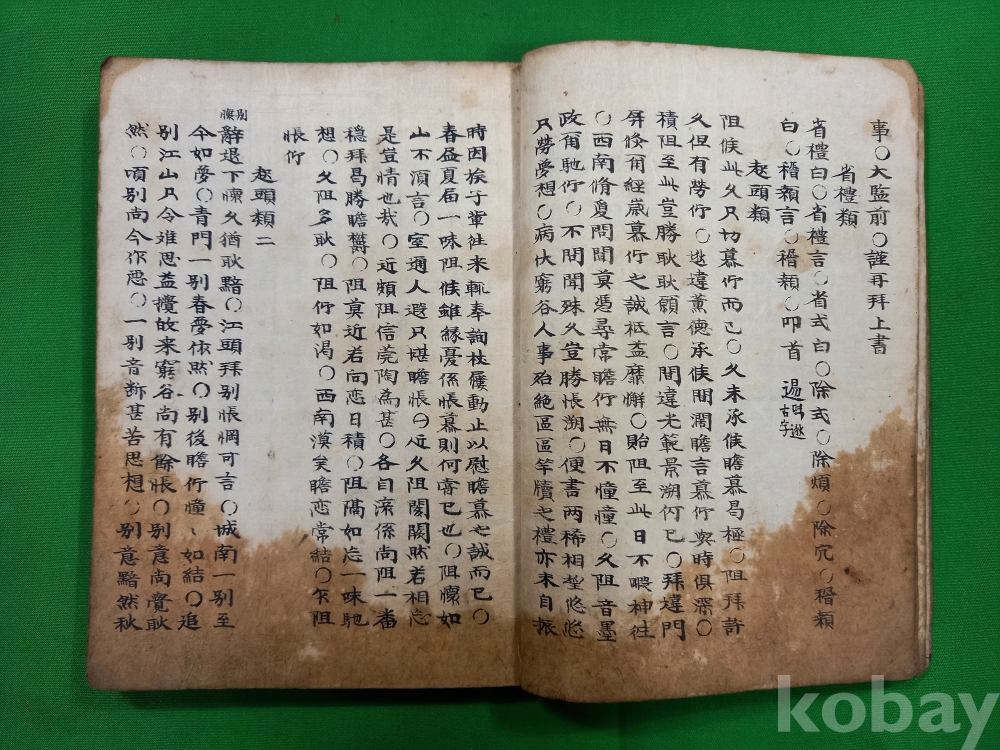 事○大監前○謹再拜上書
省禮類
省禮白○省禮言○省式白○除式○除煩○除冗○稽顙
白○稽顙言○稽顙○叩首
起頭類
阻候此久只切慕仰而已○久未承候瞻慕曷極○阻拜許
久但有勞仰○逖違薰德承候間濶瞻言慕仰與時俱深○
積阻至此豈勝耿耿願言○間違光範景溯何已○拜違門
屛倏爾經歲慕仰之誠秪益靡懈○貽阻至此日不暇神往
○西南脩夐問聞莫憑尋常瞻仰無日不憧憧○久阻音墨
政爾馳仰○不問聞殊久豈勝悵溯○便書兩稀相望悠悠
只勞夢想○病伏窮谷人事殆絶區區竿牘之禮亦未自振
時因族子輩往來輒奉詢杖屨動止以慰瞻慕之誠而已○
春盛夏届一味阻候雖緣憂係悵慕則何嘗已也○阻懷如
山不湏言○室邇人遐只堪瞻悵○近久阻閡闕然若相忘
是豈情也哉○近頗阻信菀陶爲甚○各自滾係尚阻一番
穩拜曷勝瞻欝○阻莫近若向恋日積○阻隔如忘一味馳
想○久阻多耿○阻仰如渴○西南漠矣瞻恋常結○乍阻
悵仰
起頭類二
別懷
辭退下懷久猶耿黯○江頭拜别悵惘可言○城南一别至
今如夢○青門一别春夢依然○别後瞻仰憧憧如結○追
别江山只今難思益攪故来窮谷尚有餘悵○别意尚覺耿
然○頃别尚今作惡○一别音斷甚苦思想○别意黯然秋